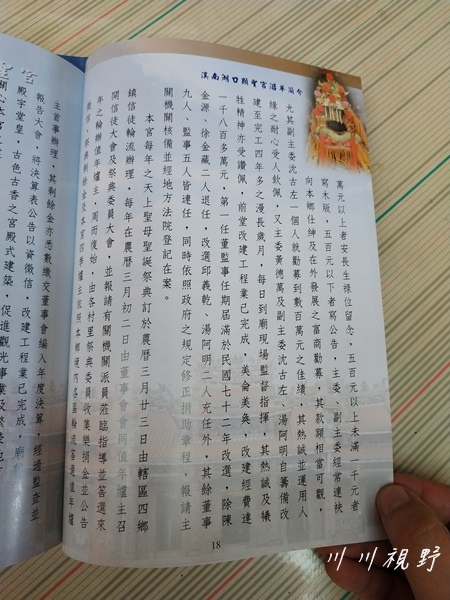 溪南湖口顯聖宮沿革簡介
萬元以上者安長生祿位留念，五百元以上未滿一千元者
寫木版，五百元以下者寫公告，主委、副主委經常連袂
向本鄉仕紳及在外發展之富商勸募，其款額相當可觀，
尤其副主委沈古左一個人就勸募到數百萬元之佳績，其熱誠並運用人
緣之耐心受人欽佩，又主委黃德萬及副主委沈古左、湯阿明自籌備改
建至完工四年多之漫長歲月，每日到廟現場監督指揮，其熱誠及犧
牲精神亦受讚佩，前堂改建工程業已完成，美侖美奐，改建經費達
一千八百多萬元，第一任董監事任期屆滿於民國七十二年改選，除陳
金源、徐金藏二人退任，改選邱義乾、湯阿明二人充任外，其餘董事
九人、監事五人皆連任，同時依照政府之規定修正捐助章程，報請主
關機關核備並經地方法院登記在案。
本宮每年之天上聖母聖誕祭典訂於農曆三月廿三日由轄區四鄉
鎮信徒輪流辦理，每年在農曆三月初二日由董事會會同值年爐主召
開信徒大會及祭典委員大會，並報請有關機關派員蒞臨指導並答選來
年之輪辦值年爐主，周而復始，由各村里祭典委員收集樂捐金並公告
徵信，祭典剩餘金及本宮四季爐主依照本鄉境內各區輪流答選值年爐
主首事辦理，其剩餘金亦悉數繳交董事會編入年度決算，經過監查並
報告大會，將決算表公告以資徵信，改建工程業已完成，廟
殿宇堂皇，古色古香之宮殿式建築，促進觀光事業及
18
川川視野